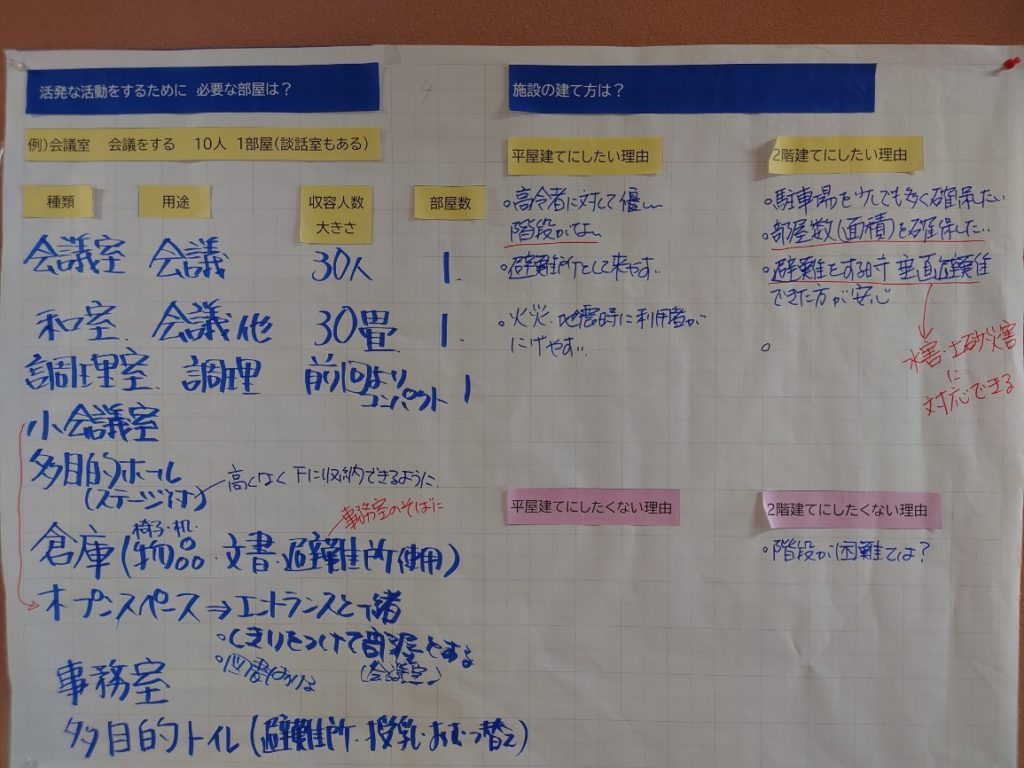 活発な活動をするために 必要な部屋は?
4
例)会議室 会議をする 10人 1部屋(談話室もある)
種類 用途 収容人数 大きさ 部屋数
会議室 会議 30人 1.
和室. 会議他 30畳. 1.
調理室. 調理 前回よりコンパクト 1
小会議室
多目的ホール
(ステージ付) 高くなく下に収納できるように.
事務室のそばに
椅子・机・
倉庫(物品・文書・避難所使用)
オープンスペース⇒エントランスと一緒
・しきりをつけて部屋とする
(会議室)
事務室
多目的トイレ(避難所・授乳・おむつ替え)
施設の建て方は?
平屋建てにしたい理由
・高令者に対して優しい
階段がない
・避難所として来やすい.
・火災・地震時に利用者が
にげやすい.
2階建てにしたい理由
・駐車場を少しでも多く確保したい
・部屋数(面積)を確保したい.
・避難をする時 垂直避難が
できた方が安心
水害・土砂災害
に
対応できる
平屋建てにしたくない理由
2階建てにしたくない理由
・階段が困難では?